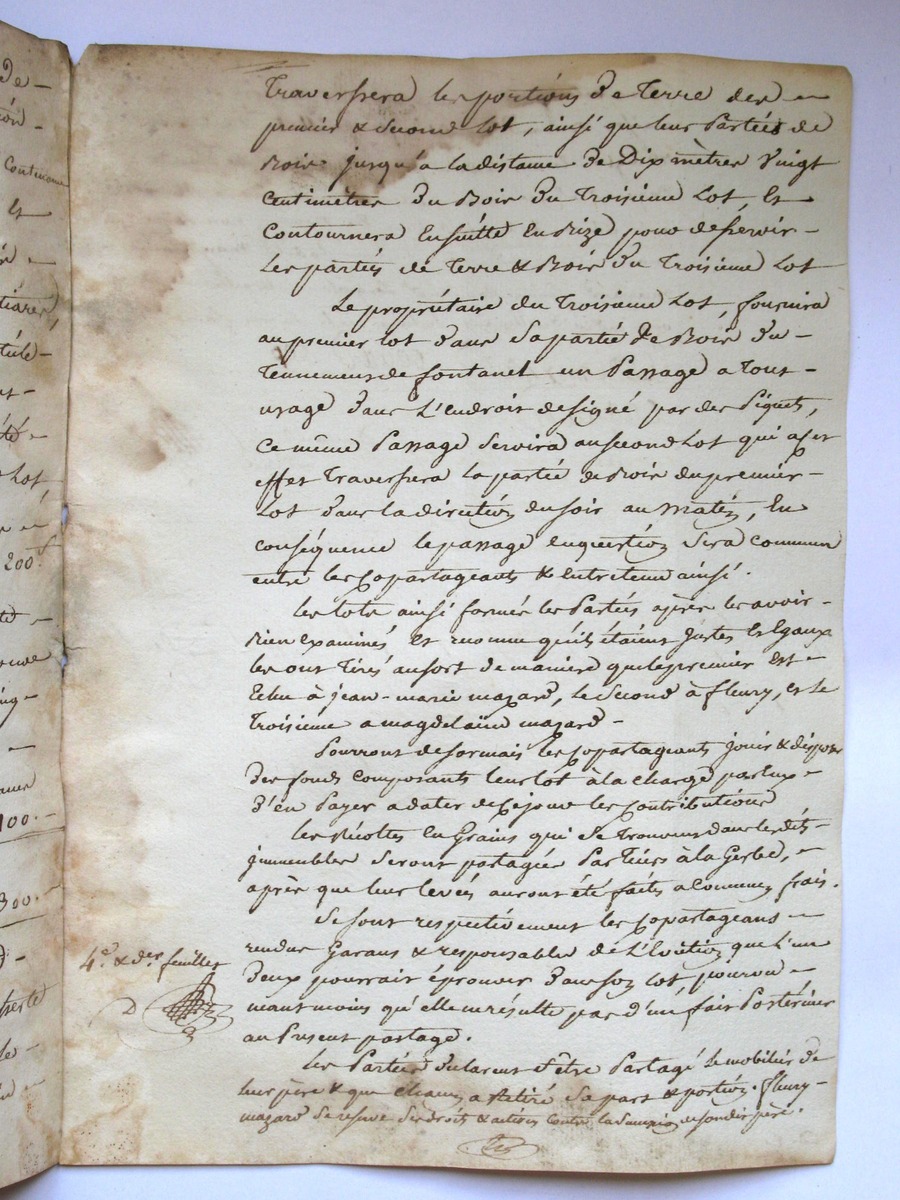 De
Contenance
Et
Lot
200.f
100.
300.
Traversera les portions de Terre des
premier & second Lot, ainsi que leurs Partiés de
Bois jusqu'a la distance de Dix mètres Vingt
Centimètres du Bois du Troisieme Lot, Et
Contournera Ensuitte En Bize pour desservir
Les partiés de Terre & Bois du Troisieme Lot
Le propriétaire du Troisieme Lot, fournira
au premier Lot dans sa partié de Bois du
Tennement de fontanet un Passage a Tout
usage dans L'Endroit designé par des Piquets,
Ce même Passage Servira au second Lot qui a cet
effet Traversera la partié de Bois du premier
Lot dans la direction du soir au matin, En
conséquence le passage En question Sera Commun
entre les Copartageants & Entretenu ainsi.
Les lots ainsi formés les Partiés après les avoir
Bien Examinés Et reconnu qu'ils étaient Justes Et Egaux
les ont Tirés au sort de maniere que le premier Est
Echu à jean-marie mazard, le second à fleury, et le
Troisieme a magdelaine mazard
Pourront desormais les Copartageants jouir & disposer
des fonds Composants leur Lot à la charge par Eux
d'en Payer a dater de Ce jour les Contributions
Les Récoltes En Grains qui se trouvent dans les dits
jmmeubles seront partagées Par Tiers à la Gerbe,
après que leur levée auront été faits a Commun frais.
Se sont respectivement les Copartageans
rendus Garans & responsables de L'Eviction que L'un
deux pourrait éprouver dans son Lot, pourvu
neantmoins qu'elle ne résulte pas d'un fait Postérieur
au Present partage.
4.e & der. feuillet
Les Partiés declarent s'être Partagé le mobilier de
leur père & que Chacun a Retiré sa part & portion. fleury
mazard se reserve ses droits & actions contre la Succession de son dit père.